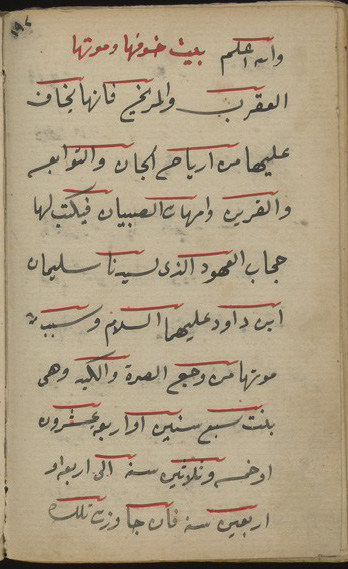 والله اعلم بيت خوفها وموتها
العقرب والمريخ فانها يخاف
عليها من ارياح الجان والتوابع
والقرين وامهات الصبيان فيكتب لها
حجاب العهود الذى لسيدنا سليمان
ابن داود عليهما السلام وسبب
موتها من وجع الصرة والكبد وهى
بنت سبع سنين او اربعه عشرون
او خمسه وثلاثين سنه الى اربعه او
اربعين سنه فان جاوزت تلك